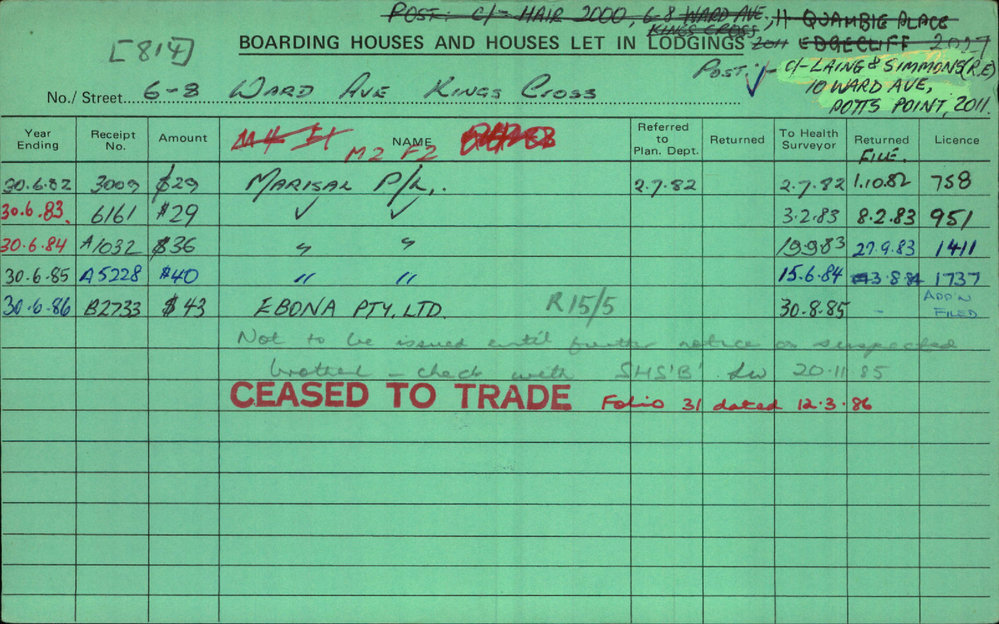 POST: C/- HAIR 2000, 6-8 WARD AVE, 11 QUAMBIE PLACE
KINGS CROSS, 2011 EDGECLIFF 2027
[814]
BOARDING HOUSES AND HOUSES LET IN LODGINGS
POST: ✓ C/- LAING & SIMMONS (R.E)
10 WARD AVE,
POTTS POINT, 2011.
No./ Street....6-8 WARD AVE KINGS CROSS
Year Ending Receipt No. Amount NAME Referred to Plan. Dept. Returned To Health Surveyor Returned FILE. Licence
M2 F2
30.6.82 3009 $29 MARISAL P/L,. 2.7.82 2.7.82 1.10.82 758
30.6.83. 6161 $29 ✓ ✓ 3.2.83 8.2.83 951
30.6.84 A1032 $36 " " 19.9.83 27.9.83 1411
30.6.85 A5228 $40 " " 15.6.84 3.8.84 1737
30.6.86 B2733 $43 EBONA PTY. LTD. R15/5 30.8.85 - APP'N FILED
Not to be issued until further notice as suspected
brothel - check with SHS'B' 20.11.85
CEASED TO TRADE Folio 31 dated 12.3.86